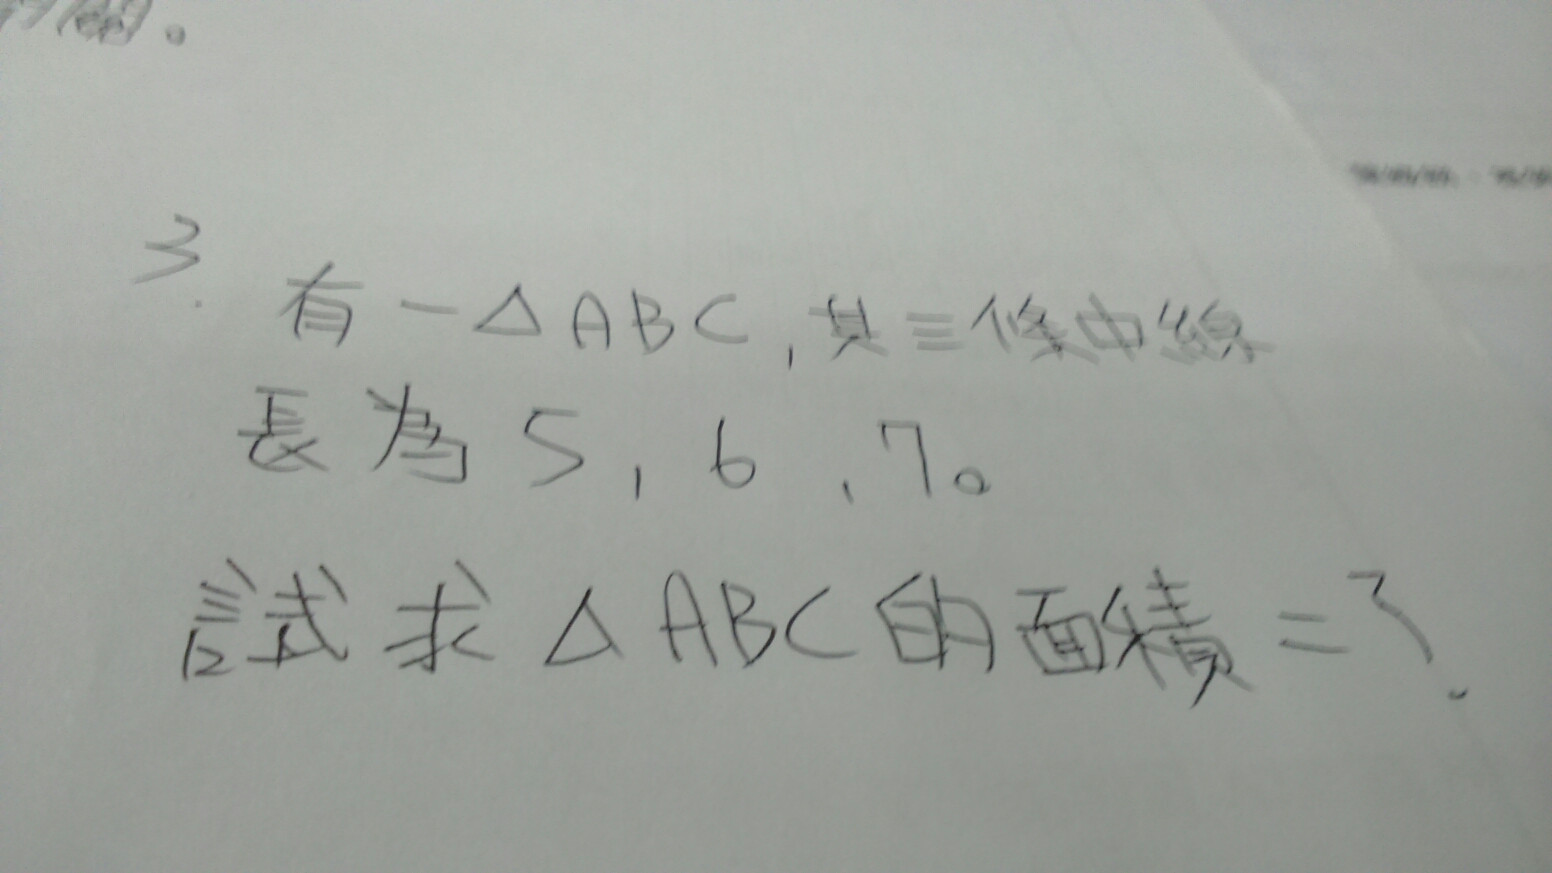 3. 有一△ABC,其三條中線
長為5,6,7。
試求△ABC的面積=?